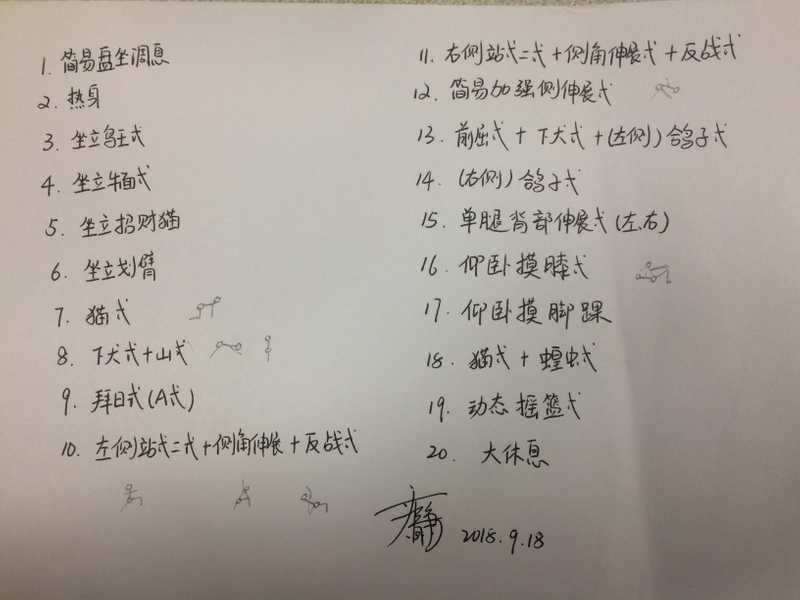 1. 简易盘坐调息
2. 热身
3. 坐立鸟王式
4. 坐立牛面式
5. 坐立招财猫
6. 坐立划臂
7. 猫式
8. 下犬式+山式
9. 拜日式(A式)
10. 左侧站式二式+侧角伸展+反战式
11. 右侧站式二式+侧角伸展式+反战式
12. 简易加强侧伸展式
13. 前屈式+下犬式+(左侧)鸽子式
14. (右侧)鸽子式
15. 单腿背部伸展式(左.右)
16. 仰卧摸膝式
17. 仰卧摸脚踝
18. 猫式+蝗虫式
19. 动态摇篮式
20. 大休息
2018.9.18